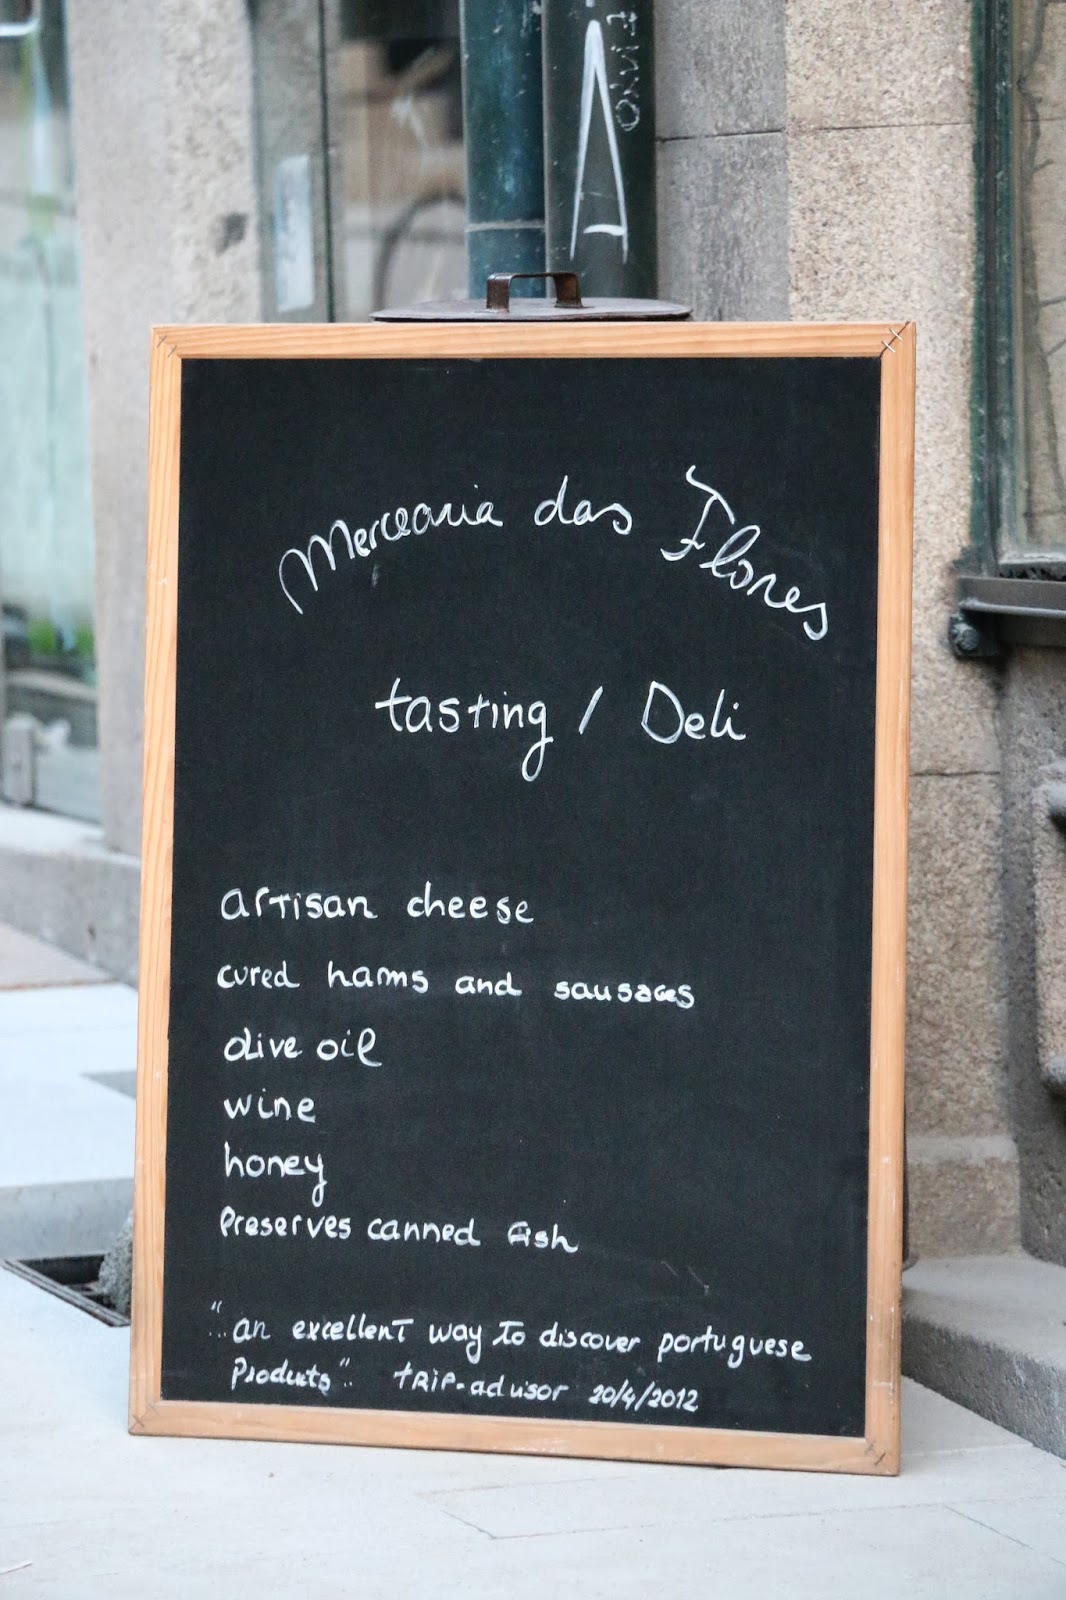 Mercearia das Flores
tasting / Deli
artisan cheese
cured hams and sausages
olive oil
wine
honey
Preserves canned fish
"... an excellent way to discover portuguese
Products".. tRiP-advisor 20/4/2012